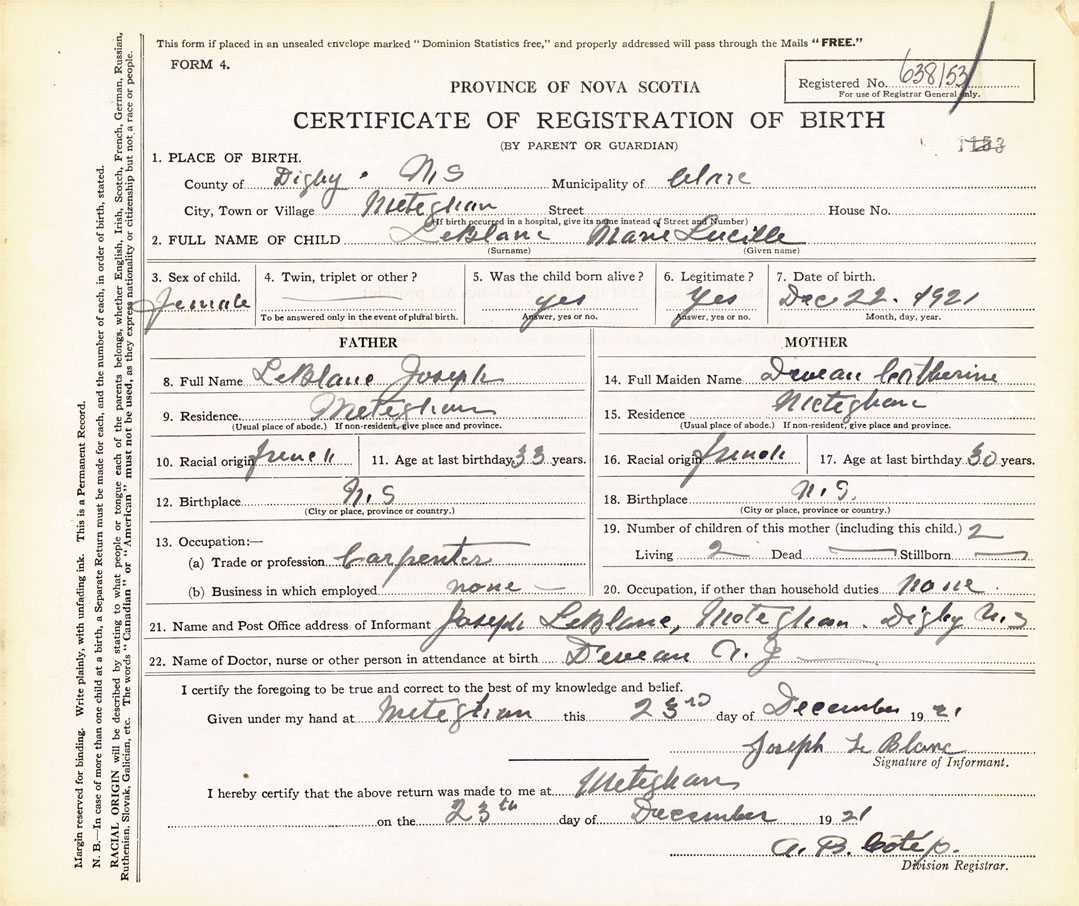 This form if placed in an unsealed envelope marked "Dominion Statistics free," and properly addressed will pass through the Mails "FREE."
FORM 4.
Registered No. 638153
For use of Registrar General only.
PROVINCE OF NOVA SCOTIA
CERTIFICATE OF REGISTRATION OF BIRTH
(BY PARENT OR GUARDIAN)
1153
1. PLACE OF BIRTH.
County of Digby. N S Municipality of Clare
City, Town or Village Meteghan Street House No.
(If birth occurred in a hospital, give its name instead of Street and Number)
2. FULL NAME OF CHILD LeBlanc Marie Lucille
(Surname) (Given name)
3. Sex of child. 4. Twin, triplet or other? 5. Was the child born alive? 6. Legitimate? 7. Date of birth.
Female yes Yes Dec 22. 1921
To be answered only in the event of plural birth. Answer, yes or no. Answer, yes or no. Month, day, year.
FATHER
8. Full Name LeBlanc Joseph
9. Residence. Meteghan
(Usual place of abode.) If non-resident, give place and province.
10. Racial origin French 11. Age at last birthday 33 years.
12. Birthplace N.S
(City or place, province or country.)
13. Occupation:—
(a) Trade or profession Carpenter
(b) Business in which employed none
MOTHER
14. Full Maiden Name Deveau Catherine
15. Residence Meteghan
(Usual place of abode.) If non-resident, give place and province.
16. Racial origin French 17. Age at last birthday 30 years.
18. Birthplace N.S.
(City or place, province or country.)
19. Number of children of this mother (including this child.) 2
Living 2 Dead Stillborn
20. Occupation, if other than household duties none.
21. Name and Post Office address of Informant Joseph LeBlanc, Meteghan. Digby N.S
22. Name of Doctor, nurse or other person in attendance at birth Deveau
I certify the foregoing to be true and correct to the best of my knowledge and belief.
Given under my hand at Meteghan this 23rd day of December 1921
Joseph LeBlanc
Signature of Informant.
I hereby certify that the above return was made to me at Meteghan
on the 23th day of December 1921
A. B. Coté
Division Registrar.
Margin reserved for binding. Write plainly, with unfading ink. This is a Permanent Record.
N. B.—In case of more than one child at a birth, a Separate Return must be made for each, and the number of each, in order of birth, stated.
RACIAL ORIGIN will be described by stating to what people or tongue each of the parents belongs, whether English, Irish, Scotch, French, German, Russian,
Ruthenian, Slovak, Galician, etc. The words "Canadian" or "American" must not be used, as they express nationality or citizenship but not a race or people.